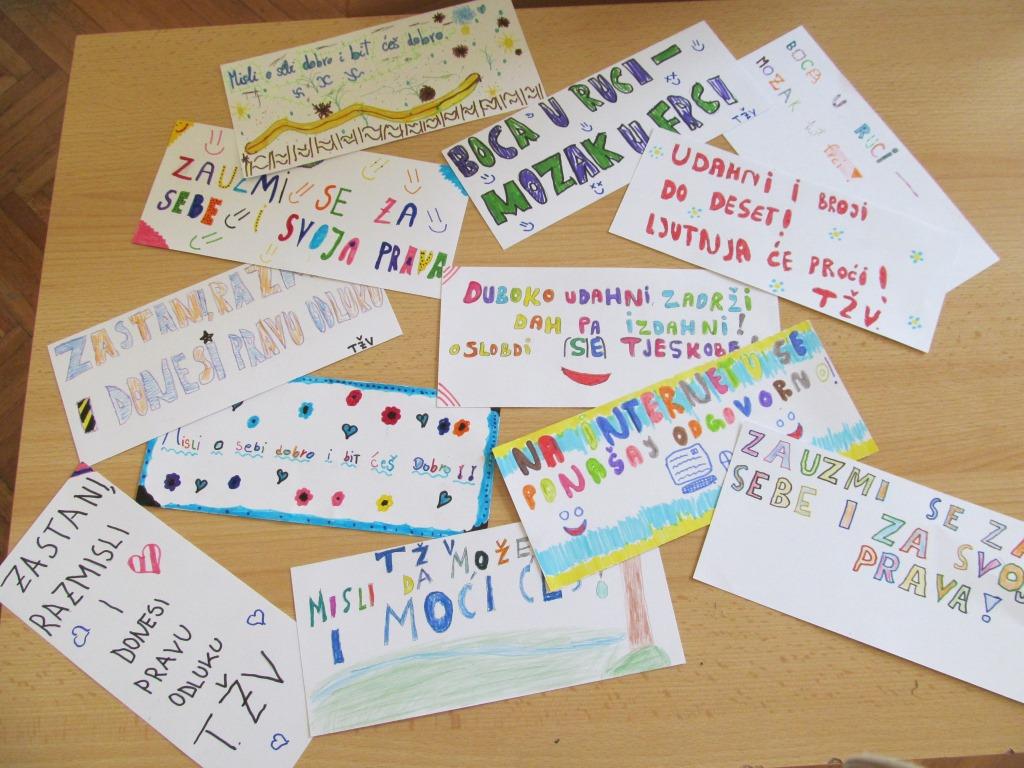 Misli o sebi dobro i bit ćeš dobro.
ZAUZMI SE ZA
SEBE i SVOJA PRAVA
BOCA U RUCI –
MOZAK U FRCI
TŽV
BOCA U RUCI –
MOZAK U frci
UDAHNI I BROJI
DO DESET!
LJUTNJA ĆE PROĆI!
TŽV.
ZASTANI, RAZ
I DONESI PRAVU ODLUKU
TŽV
DUBOKO UDAHNI, ZADRŽI
DAH PA IZDAHNI!
OSLOBDI SE TJESKOBE!
Misli o sebi dobro i bit ćeš Dobro!!
NA INTERNETU SE
PONAŠAJ ODGOVORNO!
ZAUZMI SE ZA
SEBE I ZA SVOJ
PRAVA!
ZASTANI,
RAZMISLI
I
DONESI
PRAVU
ODLUKU
T.ŽV
TŽV
MISLI DA MOŽE
I MOĆI ĆEŠ!